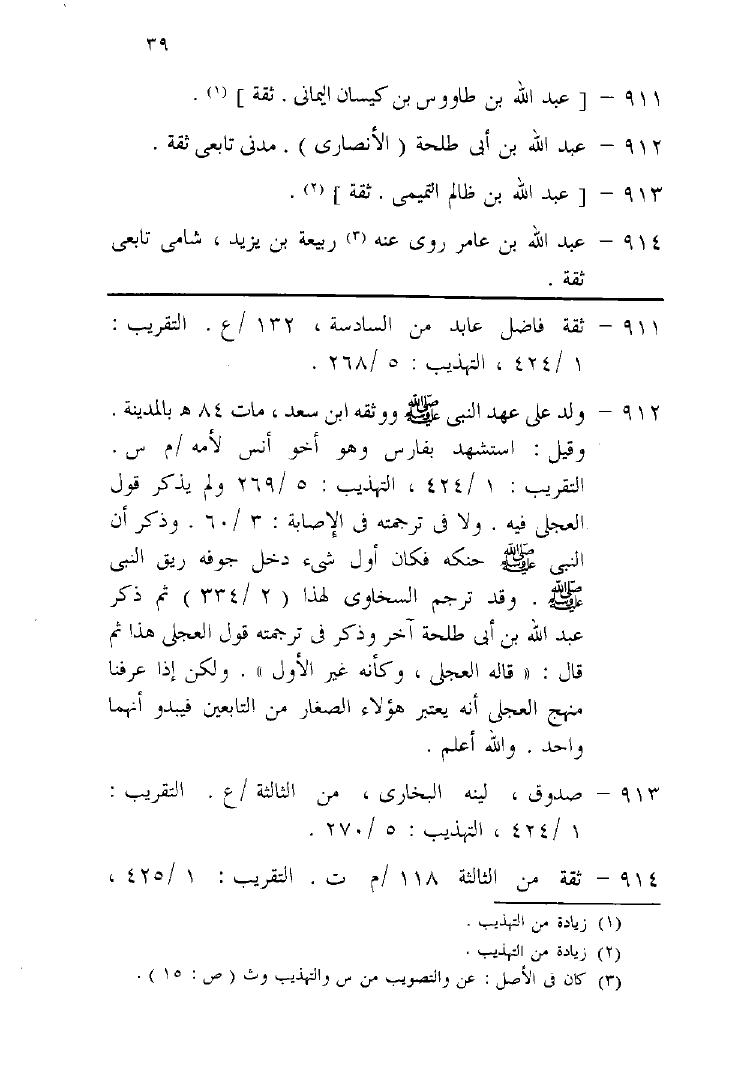 ٣٩
٩١١ – [ عبد الله بن طاووس بن كيسان اليمانى . ثقة ] (١) .
٩١٢ – عبد الله بن أبى طلحة ( الأنصارى ) . مدنى تابعى ثقة .
٩١٣ – [ عبد الله بن ظالم التميمى . ثقة ] (٢) .
٩١٤ – عبد الله بن عامر روى عنه (٣) ربيعة بن يزيد ، شامى تابعى
ثقة .
٩١١ – ثقة فاضل عابد من السادسة ، ١٣٢ /ع . التقريب :
١ /٤٢٤ ، التهذيب : ٥ /٢٦٨ .
٩١٢ – ولد على عهد النبى ﷺ ووثقه ابن سعد ، مات ٨٤ هـ بالمدينة .
وقيل : استشهد بفارس وهو أخو أنس لأمه /م س .
التقريب : ١ /٤٢٤ ، التهذيب : ٥ /٢٦٩ ولم يذكر قول
العجلى فيه . ولا فى ترجمته فى الإصابة : ٣ /٦٠ . وذكر أن
النبى ﷺ حنكه فكان أول شىء دخل جوفه ريق النبى
ﷺ . وقد ترجم السخاوى لهذا ( ٢ /٣٣٤ ) ثم ذكر
عبد الله بن أبى طلحة آخر وذكر فى ترجمته قول العجلى هذا ثم
قال : « قاله العجلى ، وكأنه غير الأول » . ولكن إذا عرفنا
منهج العجلى أنه يعتبر هؤلاء الصغار من التابعين فيبدو أنهما
واحد . والله أعلم .
٩١٣ – صدوق ، لينه البخارى ، من الثالثة /ع . التقريب :
١ /٤٢٤ ، التهذيب : ٥ /٢٧٠ .
٩١٤ – ثقة من الثالثة ١١٨ /م ت . التقريب : ١ /٤٢٥ ،
(١) زيادة من التهذيب .
(٢) زيادة من التهذيب .
(٣) كان فى الأصل : عن والتصويب من س والتهذيب وث ( ص : ١٥ ) .